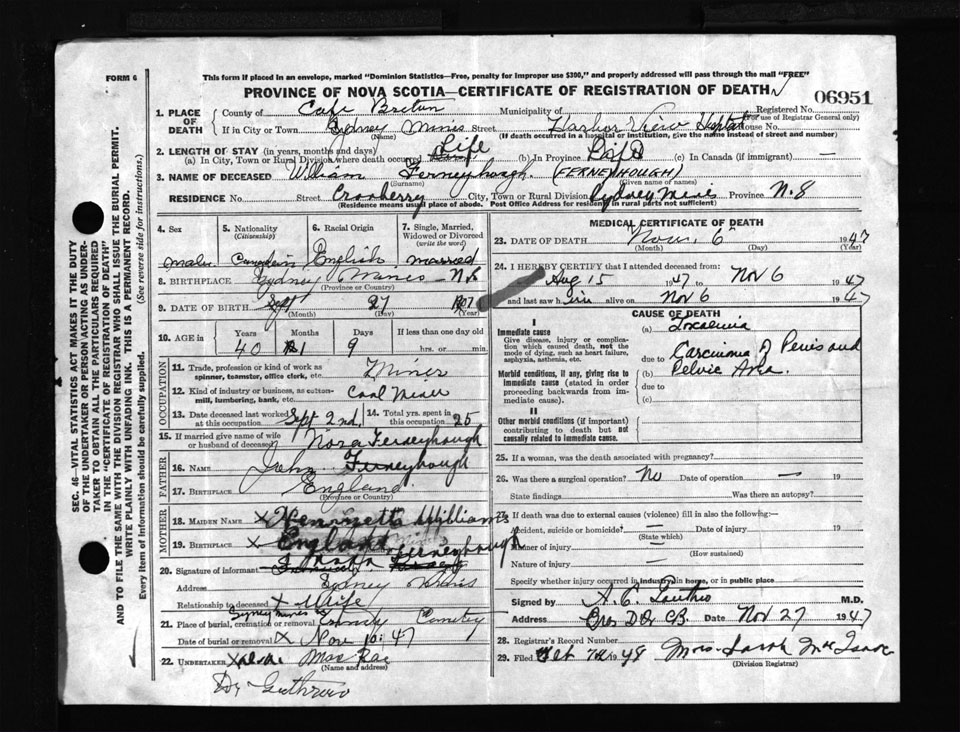 FORM 6
This form if placed in an envelope, marked "Dominion Statistics—Free, penalty for improper use $300," and properly addressed will pass through the mail "FREE"
PROVINCE OF NOVA SCOTIA—CERTIFICATE OF REGISTRATION OF DEATH
06951
1. PLACE OF DEATH
County of Cape Breton Municipality of Registered No.
(For use of Registrar General only)
If in City or Town Sydney Mines Street Harbor View House No.
(Name) (If death occurred in a hospital or institution, give the name instead of street and number)
2. LENGTH OF STAY (in years, months and days)
(a) In City, Town or Rural Division where death occurred Life (b) in Province Life (c) In Canada (if immigrant) —
3. NAME OF DECEASED William Ferneyhough. (FERNEYHOUGH)
(Surname) (Given name or names)
RESIDENCE No. Street Cranberry City, Town or Rural Division Sydney Mines Province N.S
(Residence means usual place of abode. Post Office Address for residents in rural parts not sufficient)
4. Sex
5. Nationality (Citizenship)
6. Racial Origin
7. Single, Married, Widowed or Divorced (write the word)
male Canadian English married
8. BIRTHPLACE Sydney Mines N.S
(Province or Country)
9. DATE OF BIRTH Sept 27 1907
(Month) (Day) (Year)
10. AGE in Years Months Days If less than one day old
40 1 9 hrs. or min.
11. Trade, profession or kind of work as spinner, teamster, office clerk, etc. Miner
12. Kind of industry or business, as cotton-mill, lumbering, bank, etc. Coal Mine
13. Date deceased last worked at this occupation Sept 2nd, 14. Total yrs. spent in this occupation 25
15. If married give name of wife or husband of deceased Nora Ferneyhough
FATHER
16. NAME John Ferneyhough
17. BIRTHPLACE England
(Province or Country)
MOTHER
18. MAIDEN NAME X Henrietta Williams
19. BIRTHPLACE X England
20. Signature of informant Nora Ferneyhough
Address Sydney Mines
Relationship to deceased X Wife
21. Place of burial, cremation or removal Sydney Mines Cemetery
Date of burial or removal X Nov 10. 47
22. UNDERTAKER
(Name and address)
MEDICAL CERTIFICATE OF DEATH
23. DATE OF DEATH Nov. 6 1947
(Month) (Day)
24. I HEREBY CERTIFY that I attended deceased from:
Aug 15 1947 to Nov 6 1947
and last saw him alive on Nov 6 1947
CAUSE OF DEATH
I
Immediate cause
Give disease, injury or complication which caused death, not the mode of dying, such as heart failure, asphyxia, asthenia, etc.
(a) Toxaemia
due to Carcinoma of Penis and
Morbid conditions, if any, giving rise to immediate cause (stated in order proceeding backwards from immediate cause).
(b) Pelvic Area.
due to
(c)
II
Other morbid conditions (if important) contributing to death but not causally related to immediate cause.
25. If a woman, was the death associated with pregnancy?
26. Was there a surgical operation? No Date of operation — 19
State findings Was there an autopsy?
27. If death was due to external causes (violence) fill in also the following:—
Accident, suicide or homicide? — Date of injury 19
(State which)
Manner of injury —
(How sustained)
Nature of injury —
Specify whether injury occurred in industry, in home, or in public place
Signed by M.D.
Address Date Nov 27 1947
28. Registrar's Record Number
29. Filed 1948 Mrs. Sarah
(Division Registrar)
SEC. 46—VITAL STATISTICS ACT MAKES IT THE DUTY
OF THE UNDERTAKER OR PERSON ACTING AS UNDERTAKER TO OBTAIN ALL THE PARTICULARS REQUIRED
IN THE "CERTIFICATE OF REGISTRATION OF DEATH"
AND TO FILE THE SAME WITH THE DIVISION REGISTRAR WHO SHALL ISSUE THE BURIAL PERMIT.
WRITE PLAINLY WITH UNFADING INK. THIS IS A PERMANENT RECORD.
Every item of information should be carefully supplied. (See reverse side for instructions.)